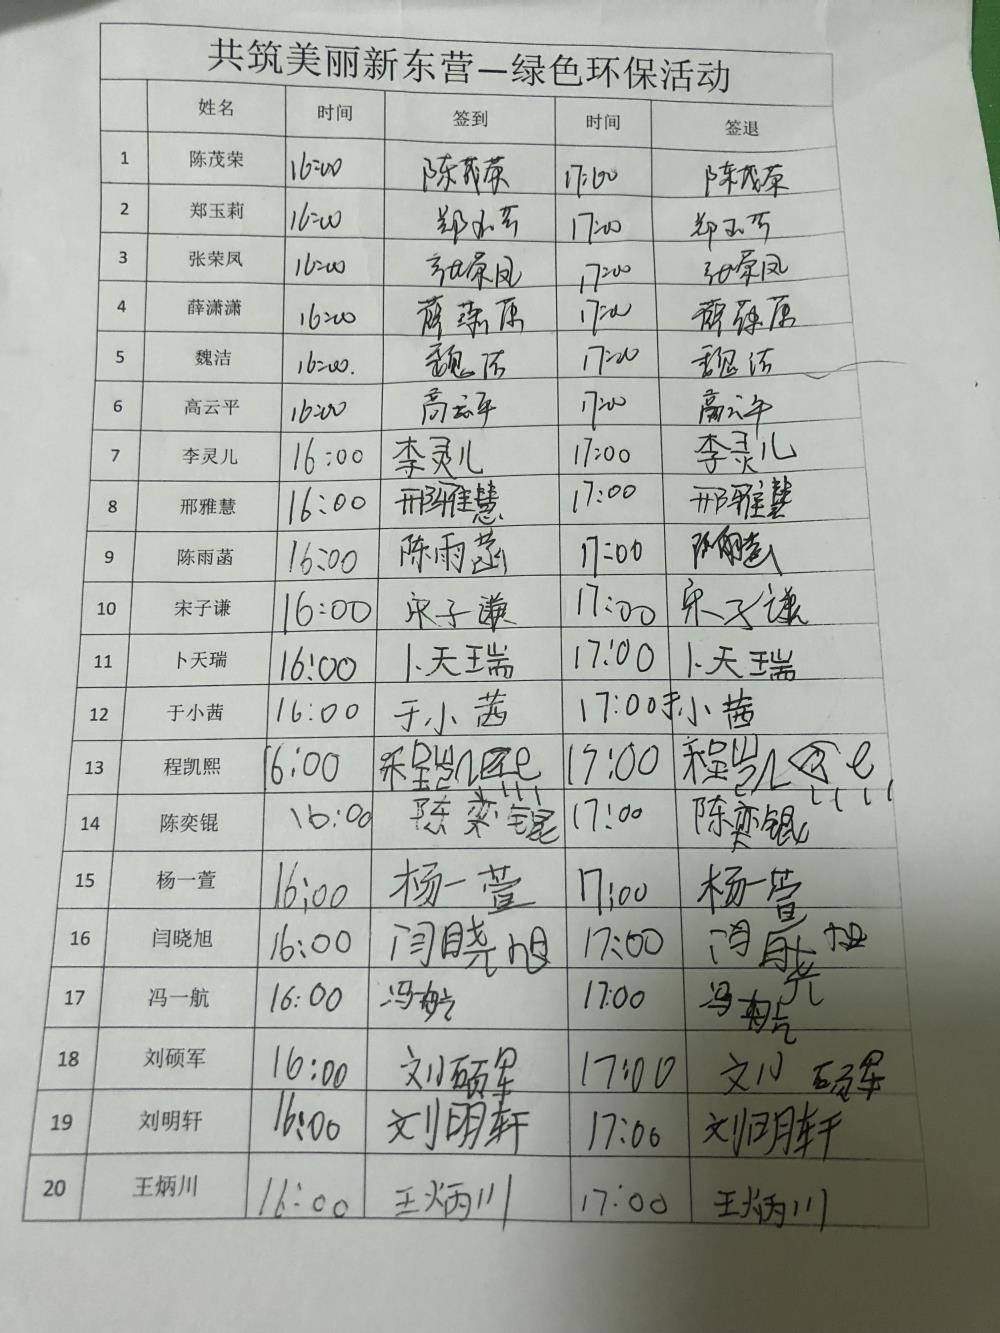 共筑美丽新东营—绿色环保活动
姓名 时间 签到 时间 签退
1 陈茂荣 16:00 陈茂荣 17:00 陈茂荣
2 郑玉莉 16:00 郑玉莉 17:00 郑玉莉
3 张荣凤 16:00 张荣凤 17:00 张荣凤
4 薛潇潇 16:00 薛潇潇 17:00 薛潇潇
5 魏洁 16:00. 魏洁 17:00 魏洁
6 高云平 16:00 高云平 17:00 高云平
7 李灵儿 16:00 李灵儿 17:00 李灵儿
8 邢雅慧 16:00 邢雅慧 17:00 邢雅慧
9 陈雨菡 16:00 陈雨菡 17:00 陈雨菡
10 宋子谦 16:00 宋子谦 17:00 宋子谦
11 卜天瑞 16:00 卜天瑞 17:00 卜天瑞
12 于小茜 16:00 于小茜 17:00 于小茜
13 程凯熙 16:00 程凯熙 17:00 程凯熙
14 陈奕锟 16:00 陈奕锟 17:00 陈奕锟
15 杨一萱 16:00 杨一萱 17:00 杨一萱
16 闫晓旭 16:00 闫晓旭 17:00 闫晓旭
17 冯一航 16:00 冯一航 17:00 冯一航
18 刘硕军 16:00 刘硕军 17:00 刘硕军
19 刘明轩 16:00 刘明轩 17:00 刘明轩
20 王炳川 16:00 王炳川 17:00 王炳川